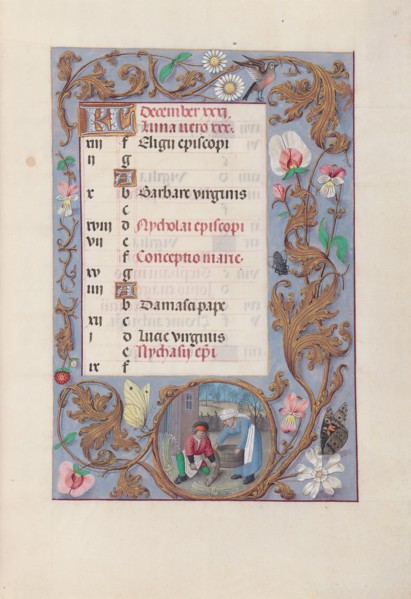 KL December xxxi.
Luna vero xxx.
xiii f Aligii episcopi
ii g
A
x b Barbare virginis
c
xviii d Nycholai episcopi
vii e
f Conceptio marie
xv g
iiii A
b Damasci pape
xii c
i d Lucie virginis
e Nychasii epi
ix f